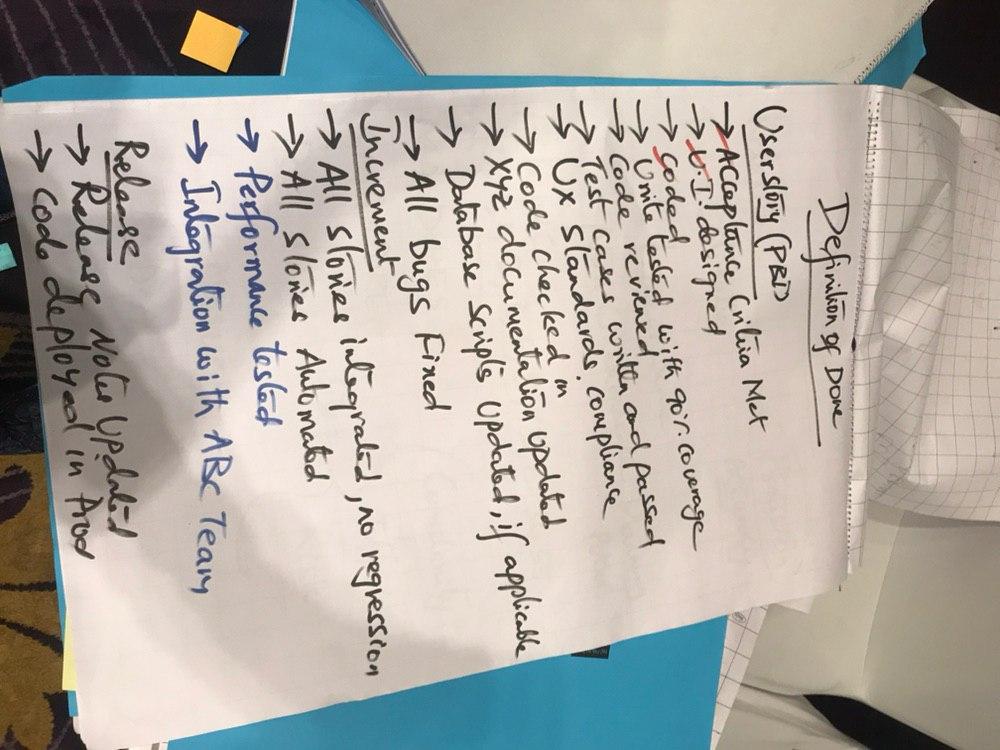 Definition of Done
User story (PBI)
→ Acceptance Criteria Met
→ U.I. designed
→ Coded
→ Unite tested with 90% coverage
→ Code reviewed
→ Test cases written and passed
→ UX standards compliance
→ Code checked in
→ XYZ documentation updated
→ Database Scripts Updated, if applicable
→ All bugs Fixed
Increment
→ All stories integrated, no regression
→ All stories Automated
→ Performance tested
→ Integration with ABC Team
Release
→ Release Notes Updated
→ Code deployed in Prod